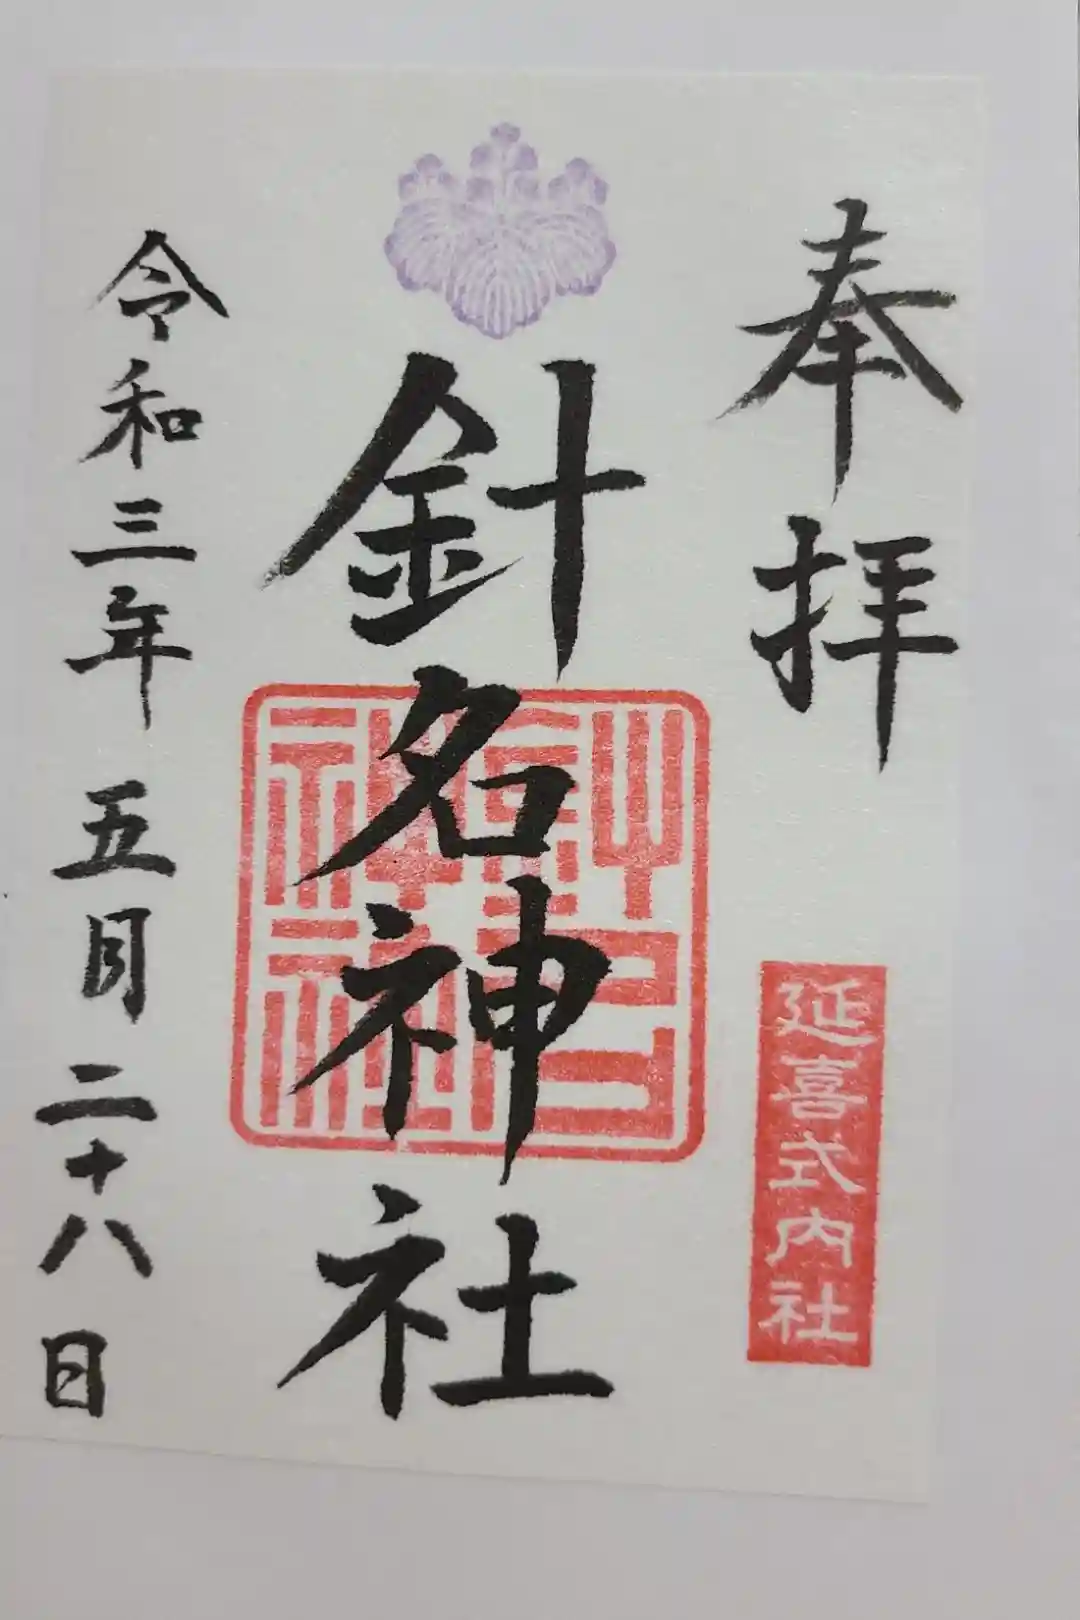 奉拝
延喜式内社
針名神社
針名神社
令和三年五月二十八日